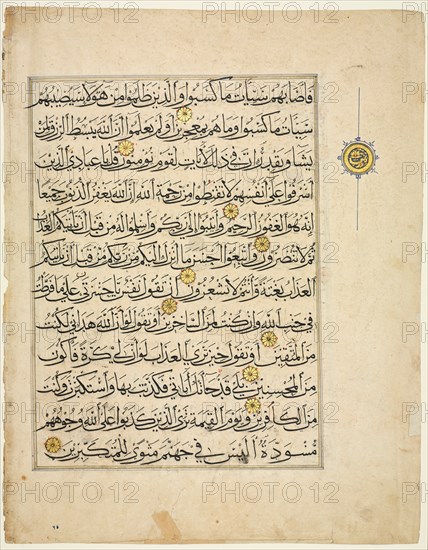 فاصابهم سيئات ما كسبوا والذين ظلموا من هؤلاء سيصيبهم
سيئات ما كسبوا وما هم بمعجزين اولم يعلموا ان الله يبسط الرزق لمن
يشاء ويقدر ان في ذلك لآيات لقوم يؤمنون قل يا عبادي الذين
اسرفوا على انفسهم لا تقنطوا من رحمة الله ان الله يغفر الذنوب جميعا
انه هو الغفور الرحيم وانيبوا الى ربكم واسلموا له من قبل ان يأتيكم العذاب
ثم لا تنصرون واتبعوا احسن ما انزل اليكم من ربكم من قبل ان يأتيكم
العذاب بغتة وانتم لا تشعرون ان تقول نفس يا حسرتى على ما فرطت
في جنب الله وان كنت لمن الساخرين او تقول لو ان الله هداني لكنت
من المتقين او تقول حين ترى العذاب لو ان لي كرة فاكون
من المحسنين بلى قد جاءتك آياتي فكذبت بها واستكبرت وكنت
من الكافرين ويوم القيمة ترى الذين كذبوا على الله وجوههم
مسودة اليس في جهنم مثوى للمتكبرين
PHOTO12